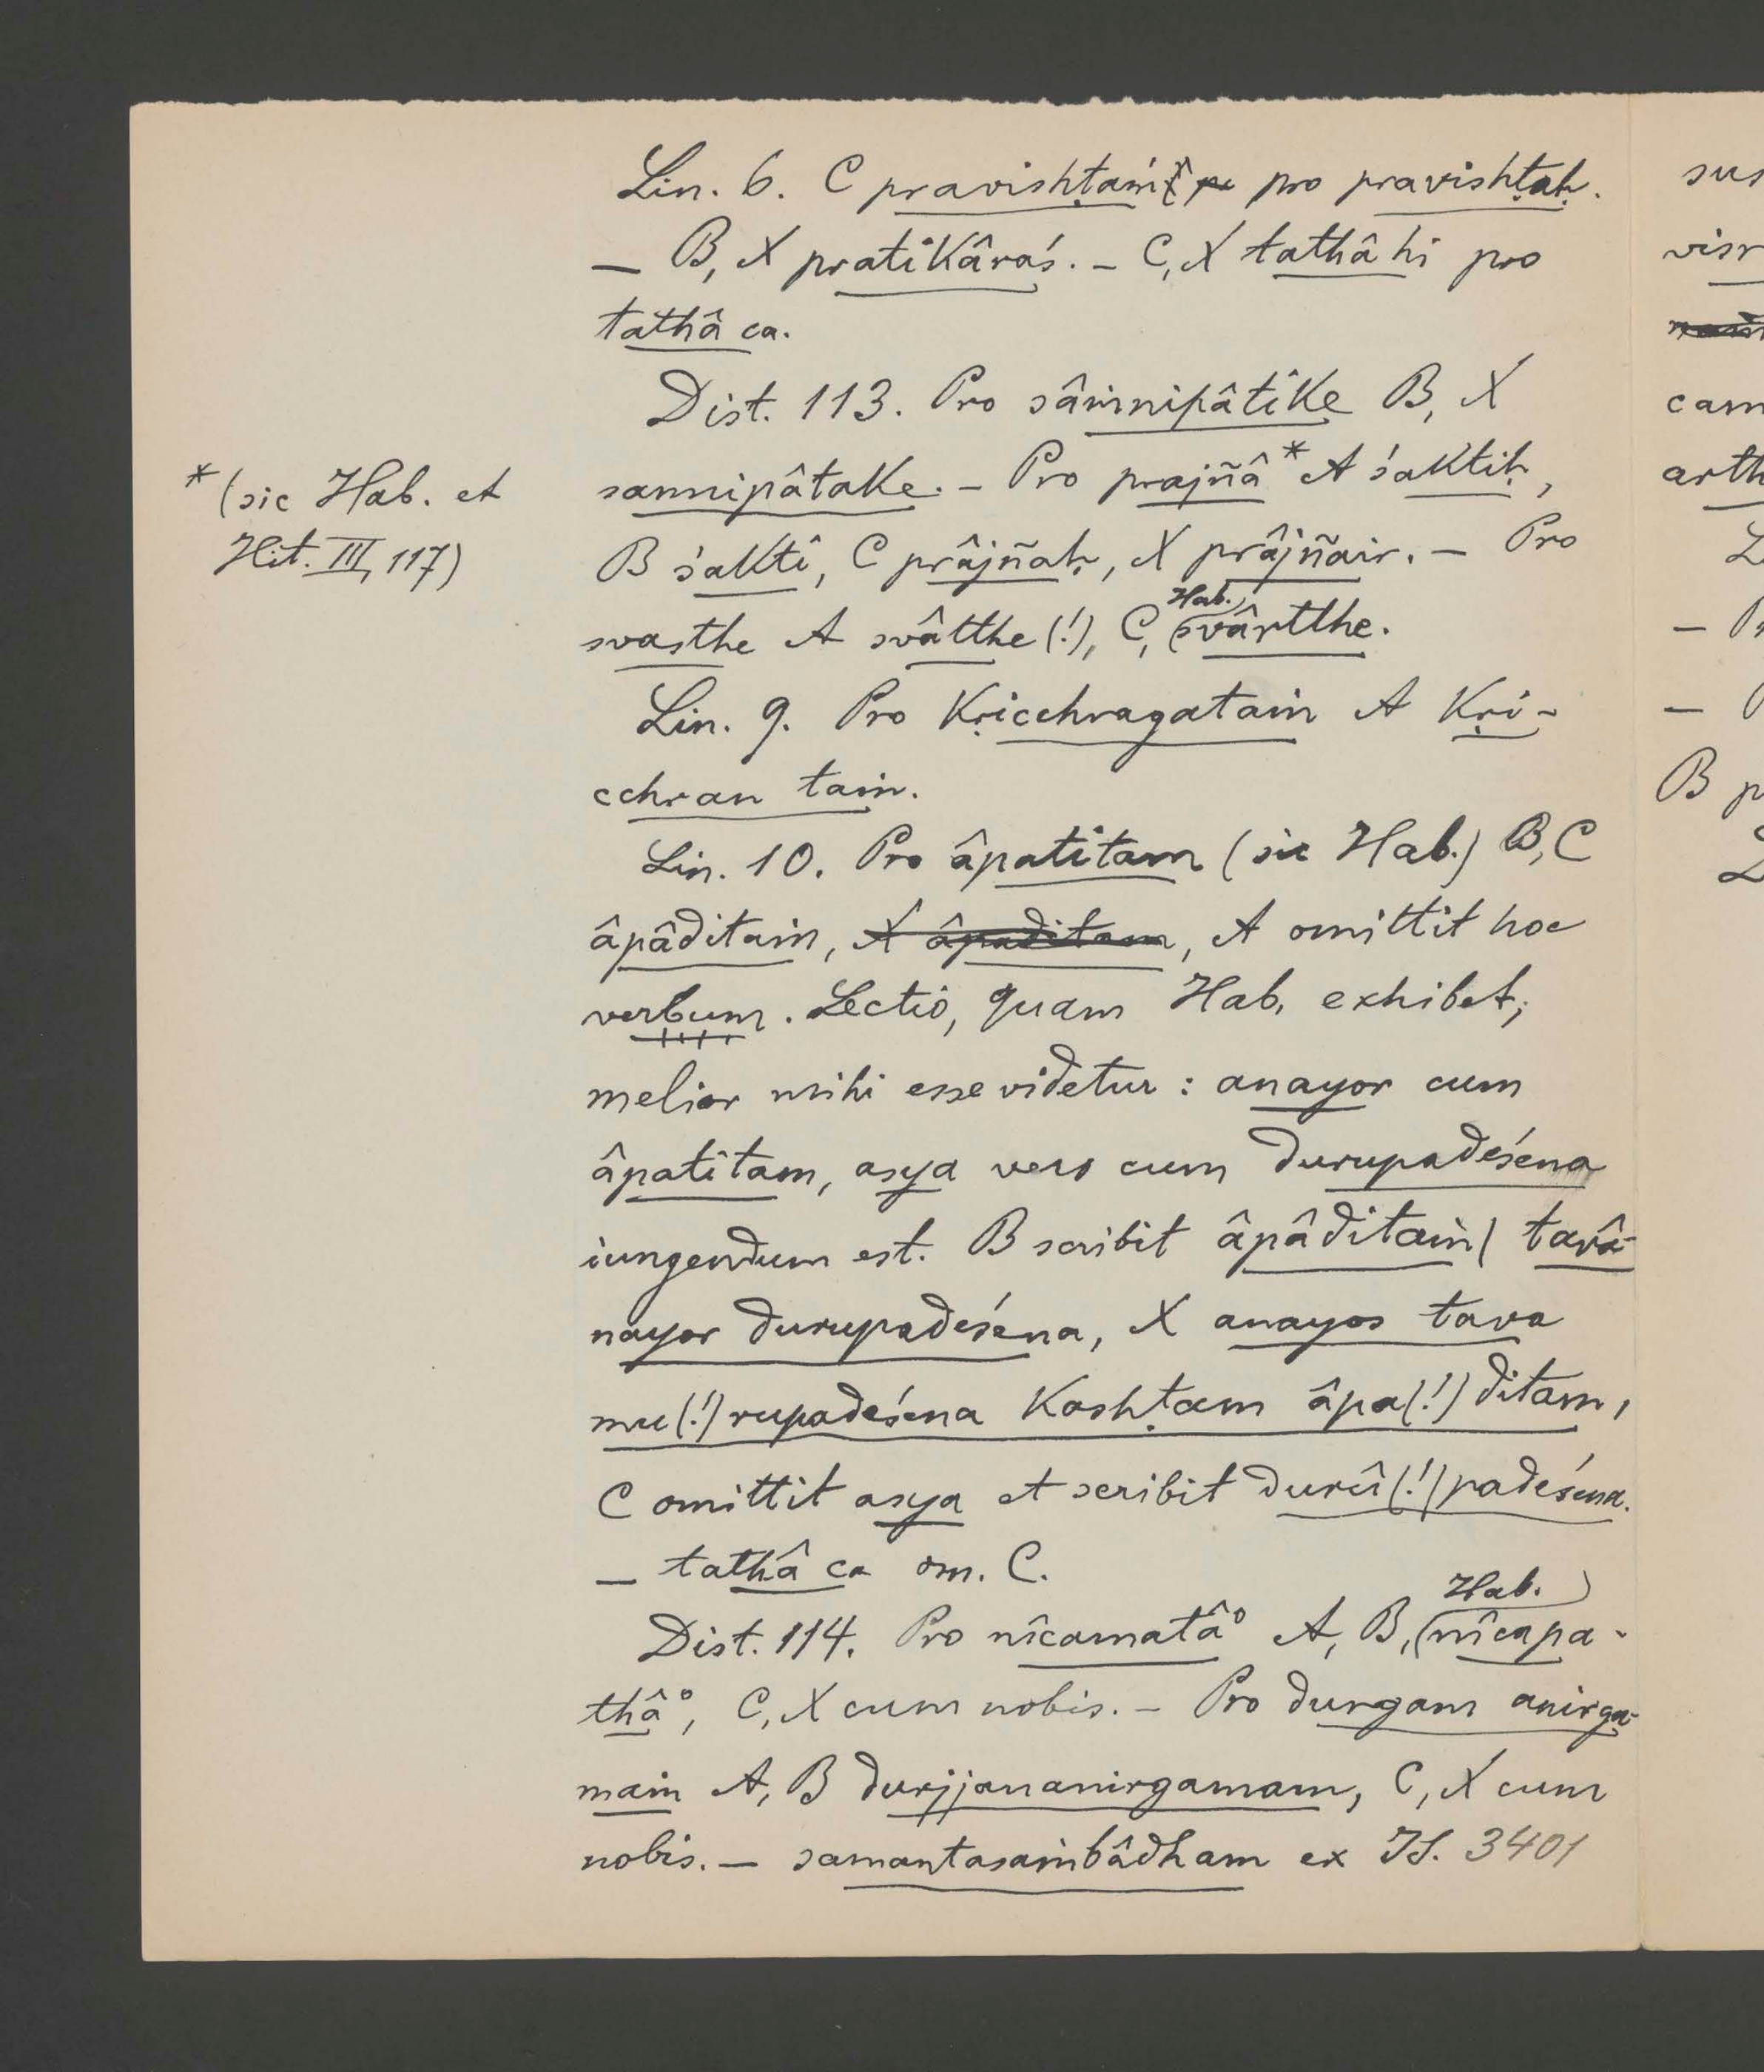 Lin. 6. C pravishṭaṁ pro pravishṭaḥ.
— B, X pratikâraś. – C, X tathâ hi pro
tathâ ca.
Dist. 113. Pro sâṁnipâtike B, X
sannipâtake. – Pro prajñâ * A śaktiḥ,
* (sic Hab. et
Hit. III, 117)
B śakti, C prâjñaḥ, X prâjñair. – Pro
svasthe A svâtthe (!), C, (Hab.) svârtthe.
Lin. 9. Pro kṛicchragataṁ A kṛi-
cchran taṁ.
Lin. 10. Pro âpatitam (sic Hab.) B, C
âpâditaṁ, X âpaditam, A omittit hoc
verbum. Lectio, quam Hab. exhibet,
melior mihi esse videtur: anayor cum
âpatitam, asya vero cum durupadeśena
iungendum est. B scribit âpâditaṁ | tavâ-
nayor durupadeśena, X anayos tava
mu (!) rupadeśena kashṭam âpa (!) ditam,
C omittit asya et scribit durû (!) padeśena.
— tathâ ca om. C.
Dist. 114. Pro nîcamatâ° A, B, (Hab.) nîcapa-
thâ°, C, X cum nobis. – Pro durgam anirga-
maṁ A, B durjjananirgamam, C, X cum
nobis. – samantasaṁbâdham ex IS. 3401
sus
visr
cam
arth
— P
B p